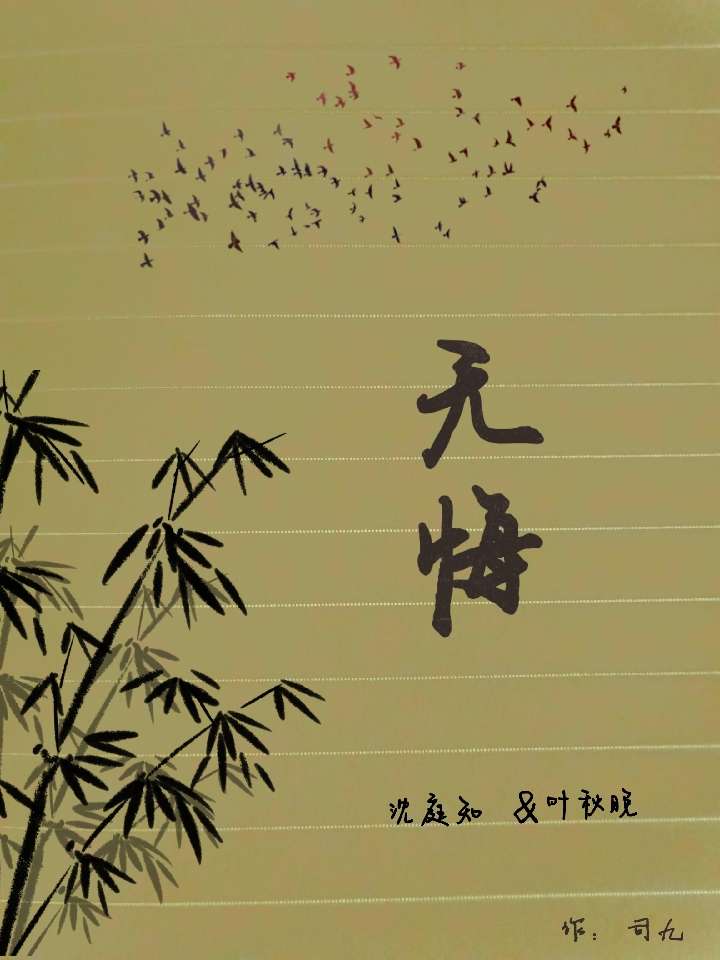 无悔
沈庭知 &叶秋晚
作：司九